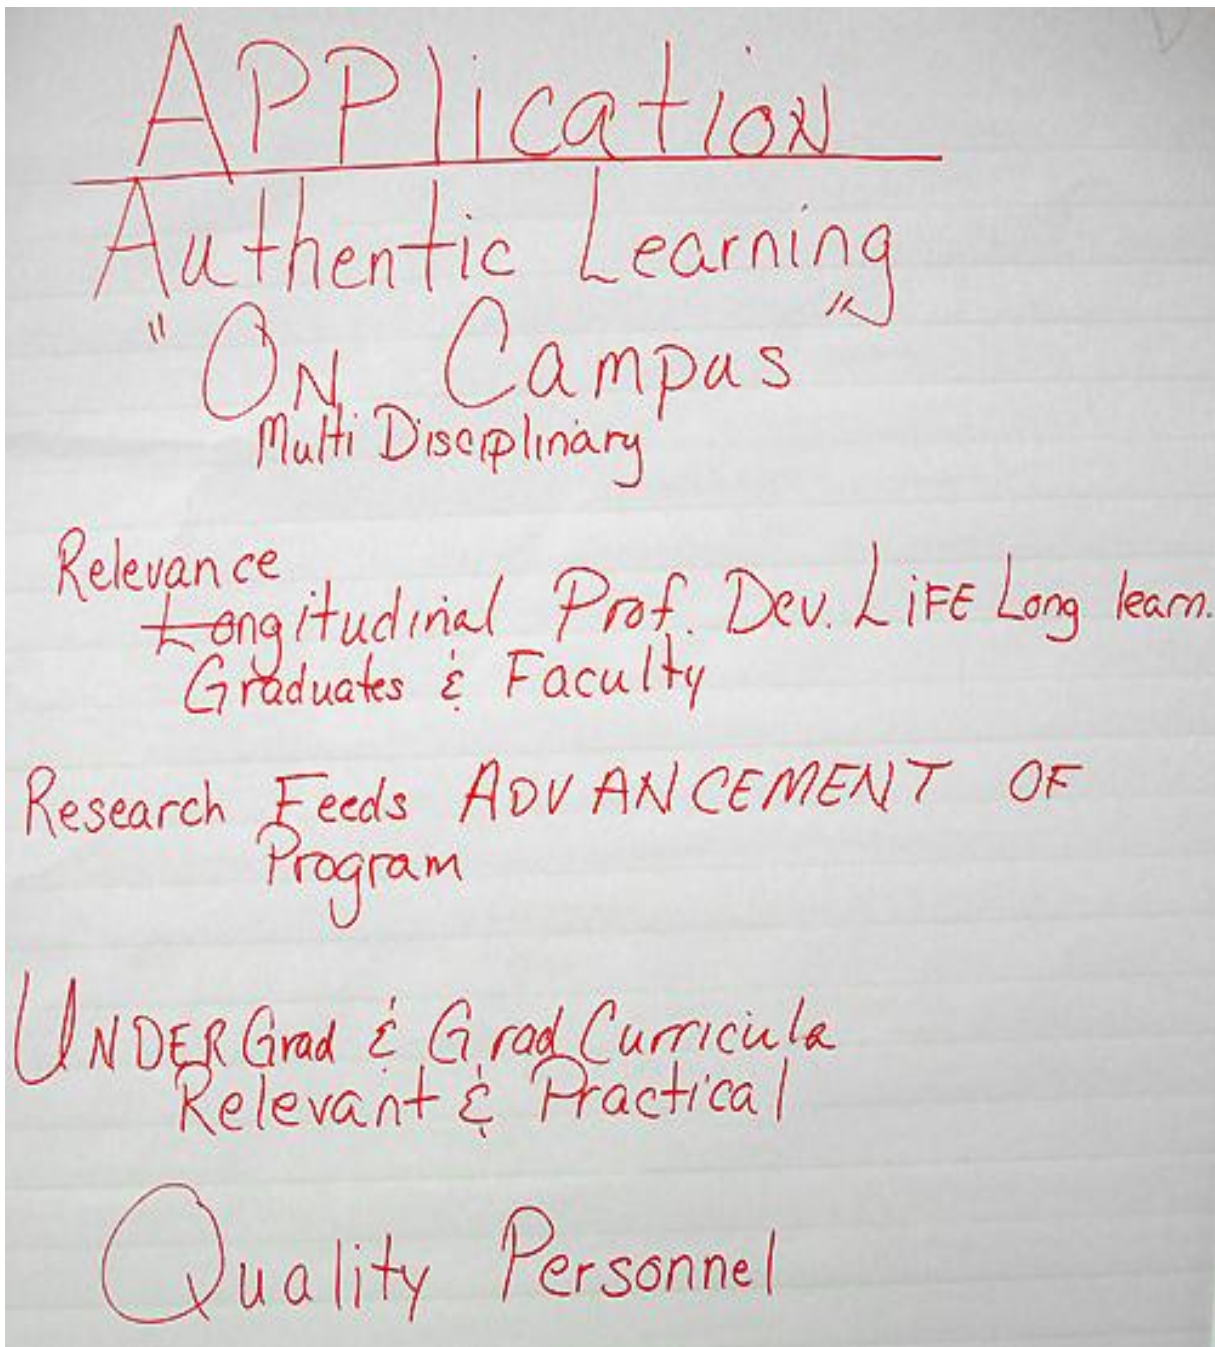 APPlication
Authentic Learning
"ON Campus"
Multi Disciplinary
Relevance
Longitudinal Prof. Dev. LiFE Long learn.
Graduates & Faculty
Research Feeds ADVANCEMENT OF
Program
UNDERGrad & Grad Curricula
Relevant & Practical
Quality Personnel